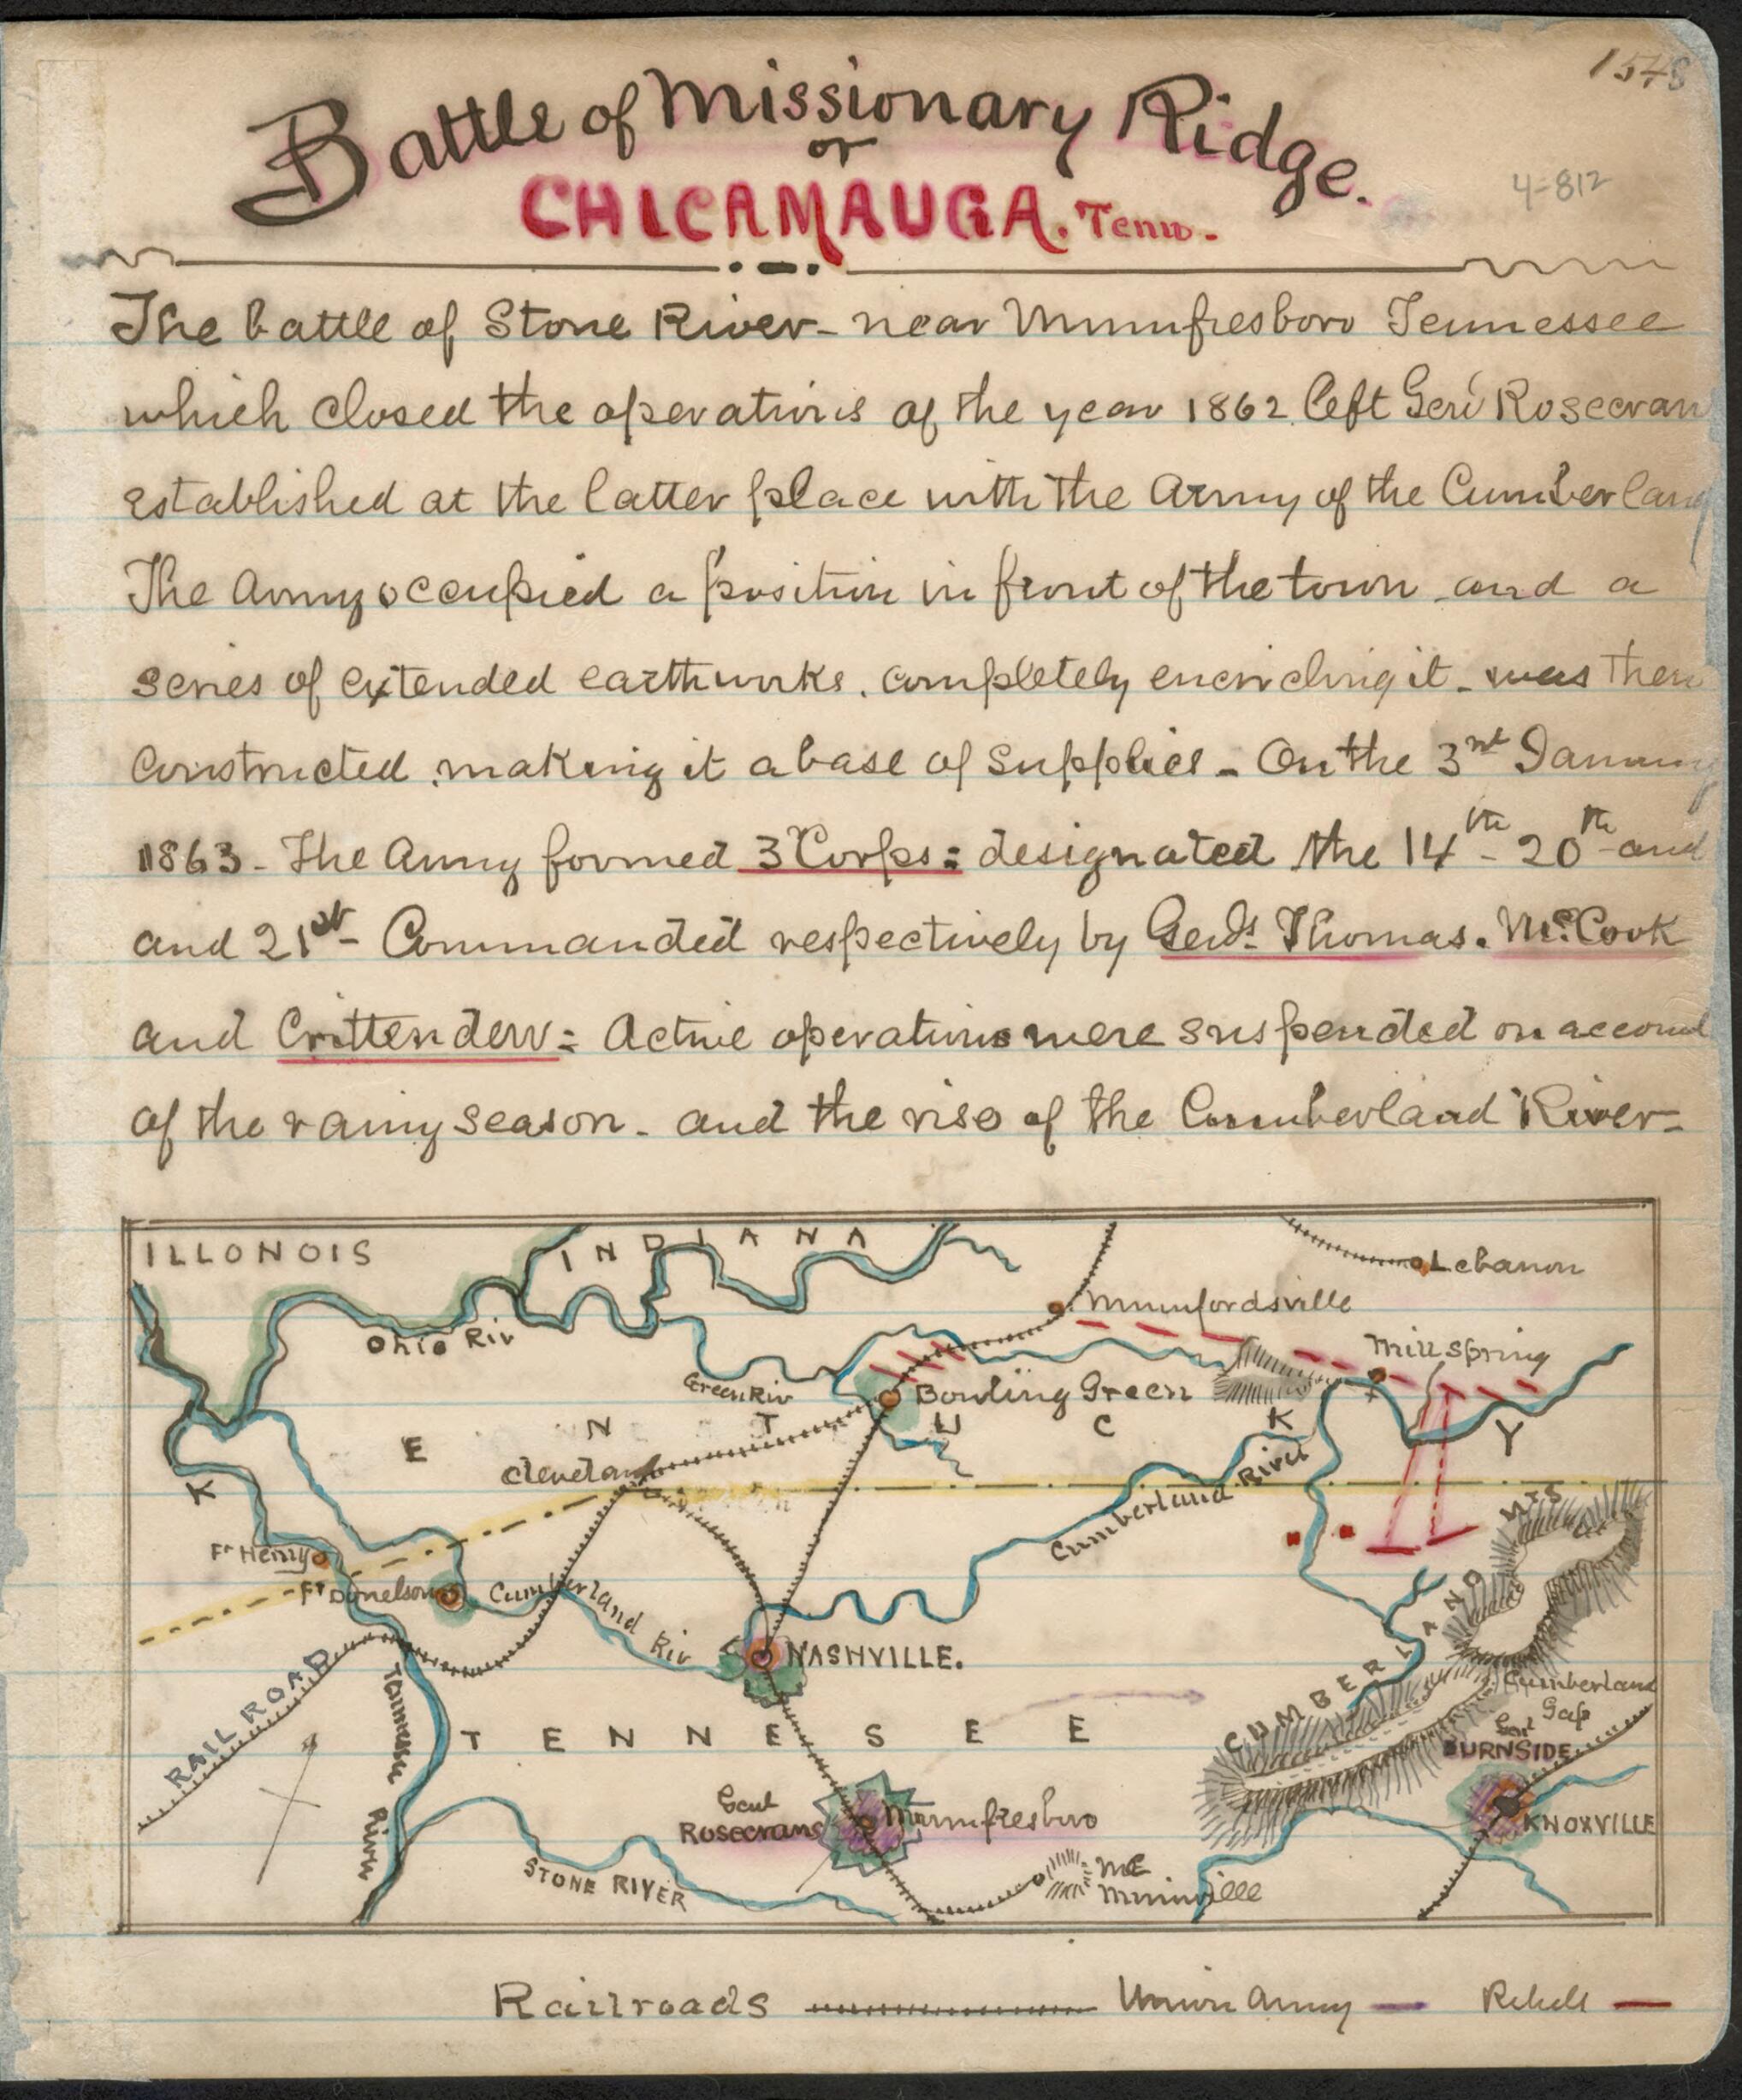 1548
Battle of Missionary Ridge.
or
CHICAMAUGA. Tenn.
4-812
The battle of Stone River - near Murmfresboro Tennessee
which closed the operations of the year 1862. left Genl Rosecran
established at the latter place with the Army of the Cumberland
The Army occupied a position in front of the town and a
series of extended earthworks, completely encircling it - was then
constructed, making it a base of supplies - On the 3rd January
1863 - The Army formed 3 Corps = designated the 14th - 20th and
and 21st - Commanded respectively by Genls. Thomas. McCook
and Crittenden = Active operations were suspended on account
of the rainy season - and the rise of the Cumberland River -
ILLONOIS
INDIANA
Lebanon
Munfordsville
Ohio Riv
Mill Spring
Green Riv
Bowling Green
KENTUCKY
Cleveland
Cumberland River
MTS
Ft Henry
Ft Donelson
Cumberland Riv
CUMBERLAND
NASHVILLE.
RAIL ROAD
Tennessee River
Cumberland Gap
TENNESEE
Genl BURNSIDE
Genl Rosecrans
Murmfresboro
KNOXVILLE
STONE RIVER
Mc Minnville
Railroads
Union Army
Rebels